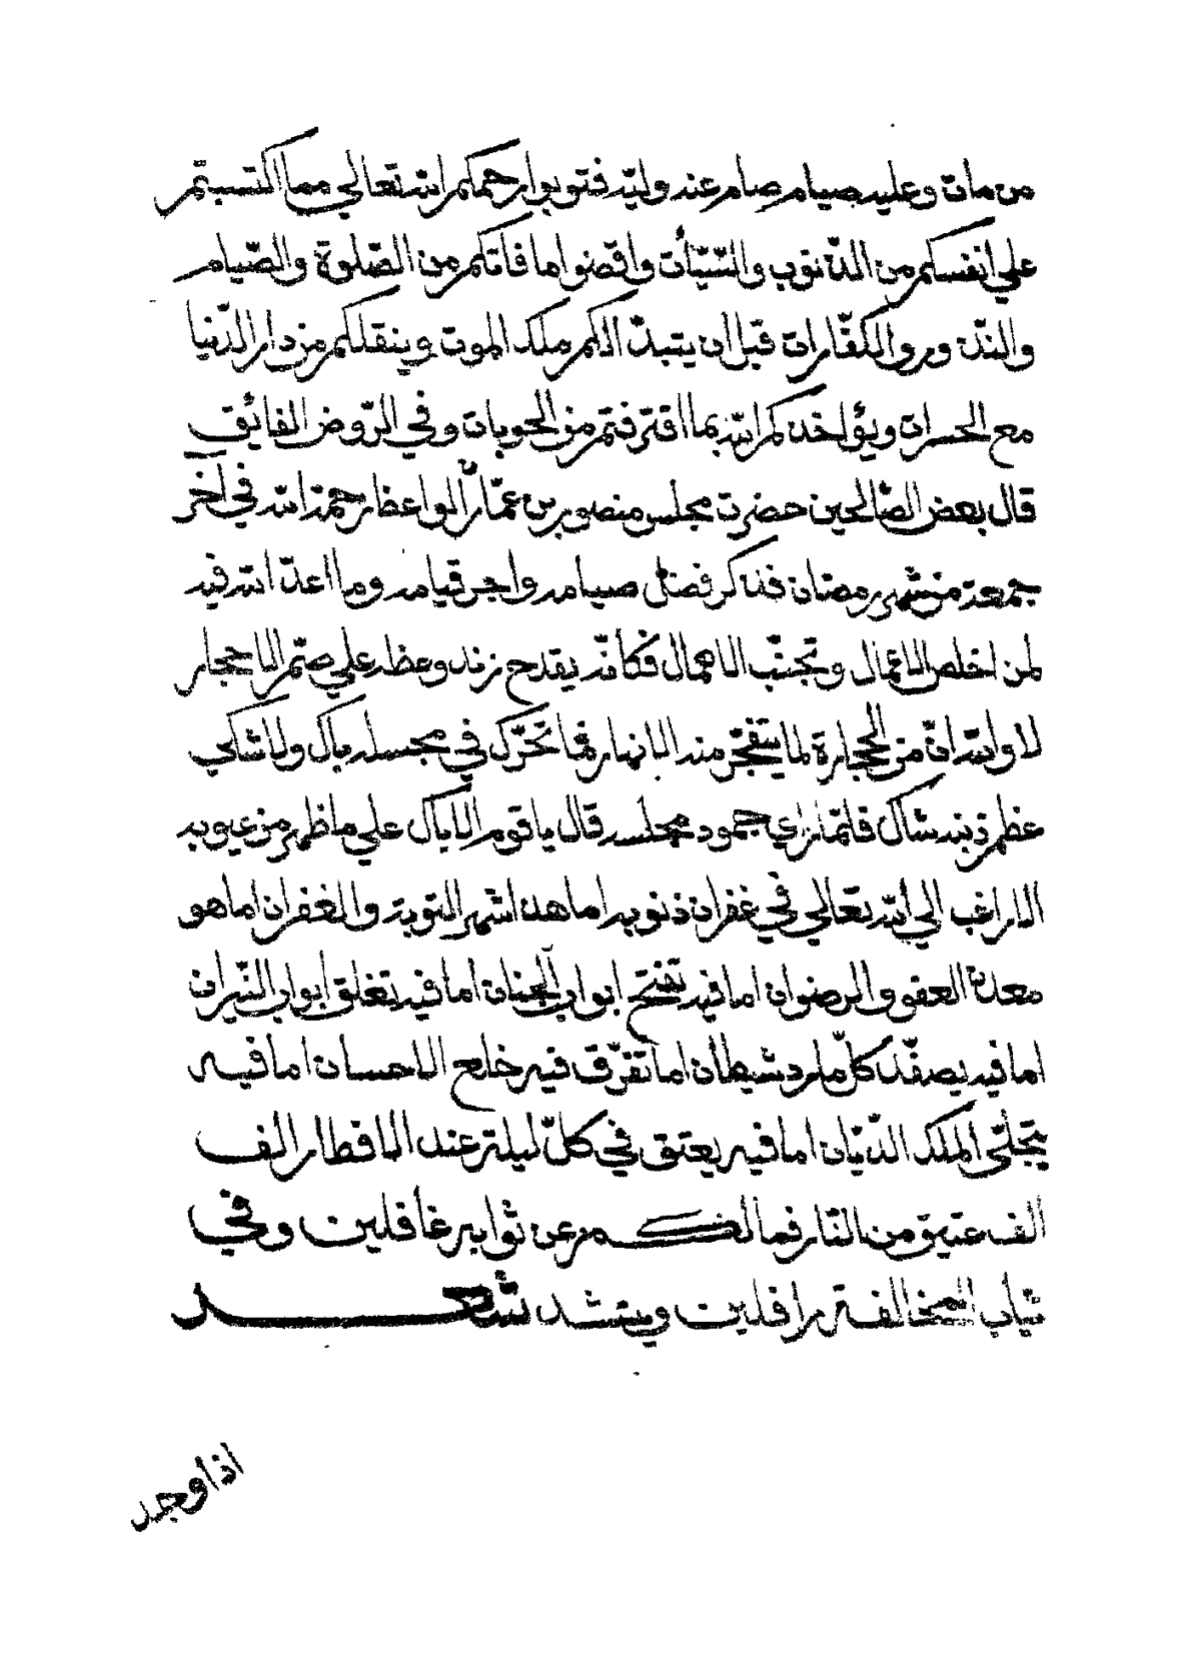 من مات وعليه صيام صام عنه وليّه فتوبوا رحمكم الله تعالي مما اكتسبتم
علي انفسكم من الذّنوب والسّيّأت واقضوا ما فاتكم من الصّلوة والصّيام
والنّذور والكفّارات قبل ان يتبدّ الكم ملك الموت وينقلكم من دار الدّنيا
مع الحسرات ويؤاخذكم الله بما اقترفتم من الحوبات وفي الرّوض الفائق
قال بعض الصّالحين حضرت مجلس منصور بن عمّار الواعظ رحمة الله في آخر
جمعة من شهر رمضان فذكر فضل صيامه واجر قيامه وما اعدّ الله فيه
لمن اخلص الاعمال وتجنّب الاهمال فكأنّه يقدح زند وعظه علي صمّ الاحجار
لا والله انّ من الحجارة لما يتفجّر منه الانهار فما تحرّك في مجسله باك ولا شاكي
عظم ذنبه شاك فلمّا رأي جمود مجلسه قال يا قوم الا باك علي ما ظهر من عيوبه
الا راغب الي الله تعالي في غفران ذنوبه اما هذا شهر التوبة والغفران اما هو
معدن العفو والرضوان اما فيه تفتح ابواب الجنان اما فيه تغلق ابواب النّيران
اما فيه يصفّد كلّ مارد شيطان اما تفرّق فيه خلع الاحسان اما فيه
يتجلّى الملك الدّيّان اما فيه يعتق في كلّ ليلة عند الافطار الف
الف عتيق من النّار فما لكم عن ثوابه غافلين وفي
ثياب المخالفة رافلين وينشد شعر
اذا وجد